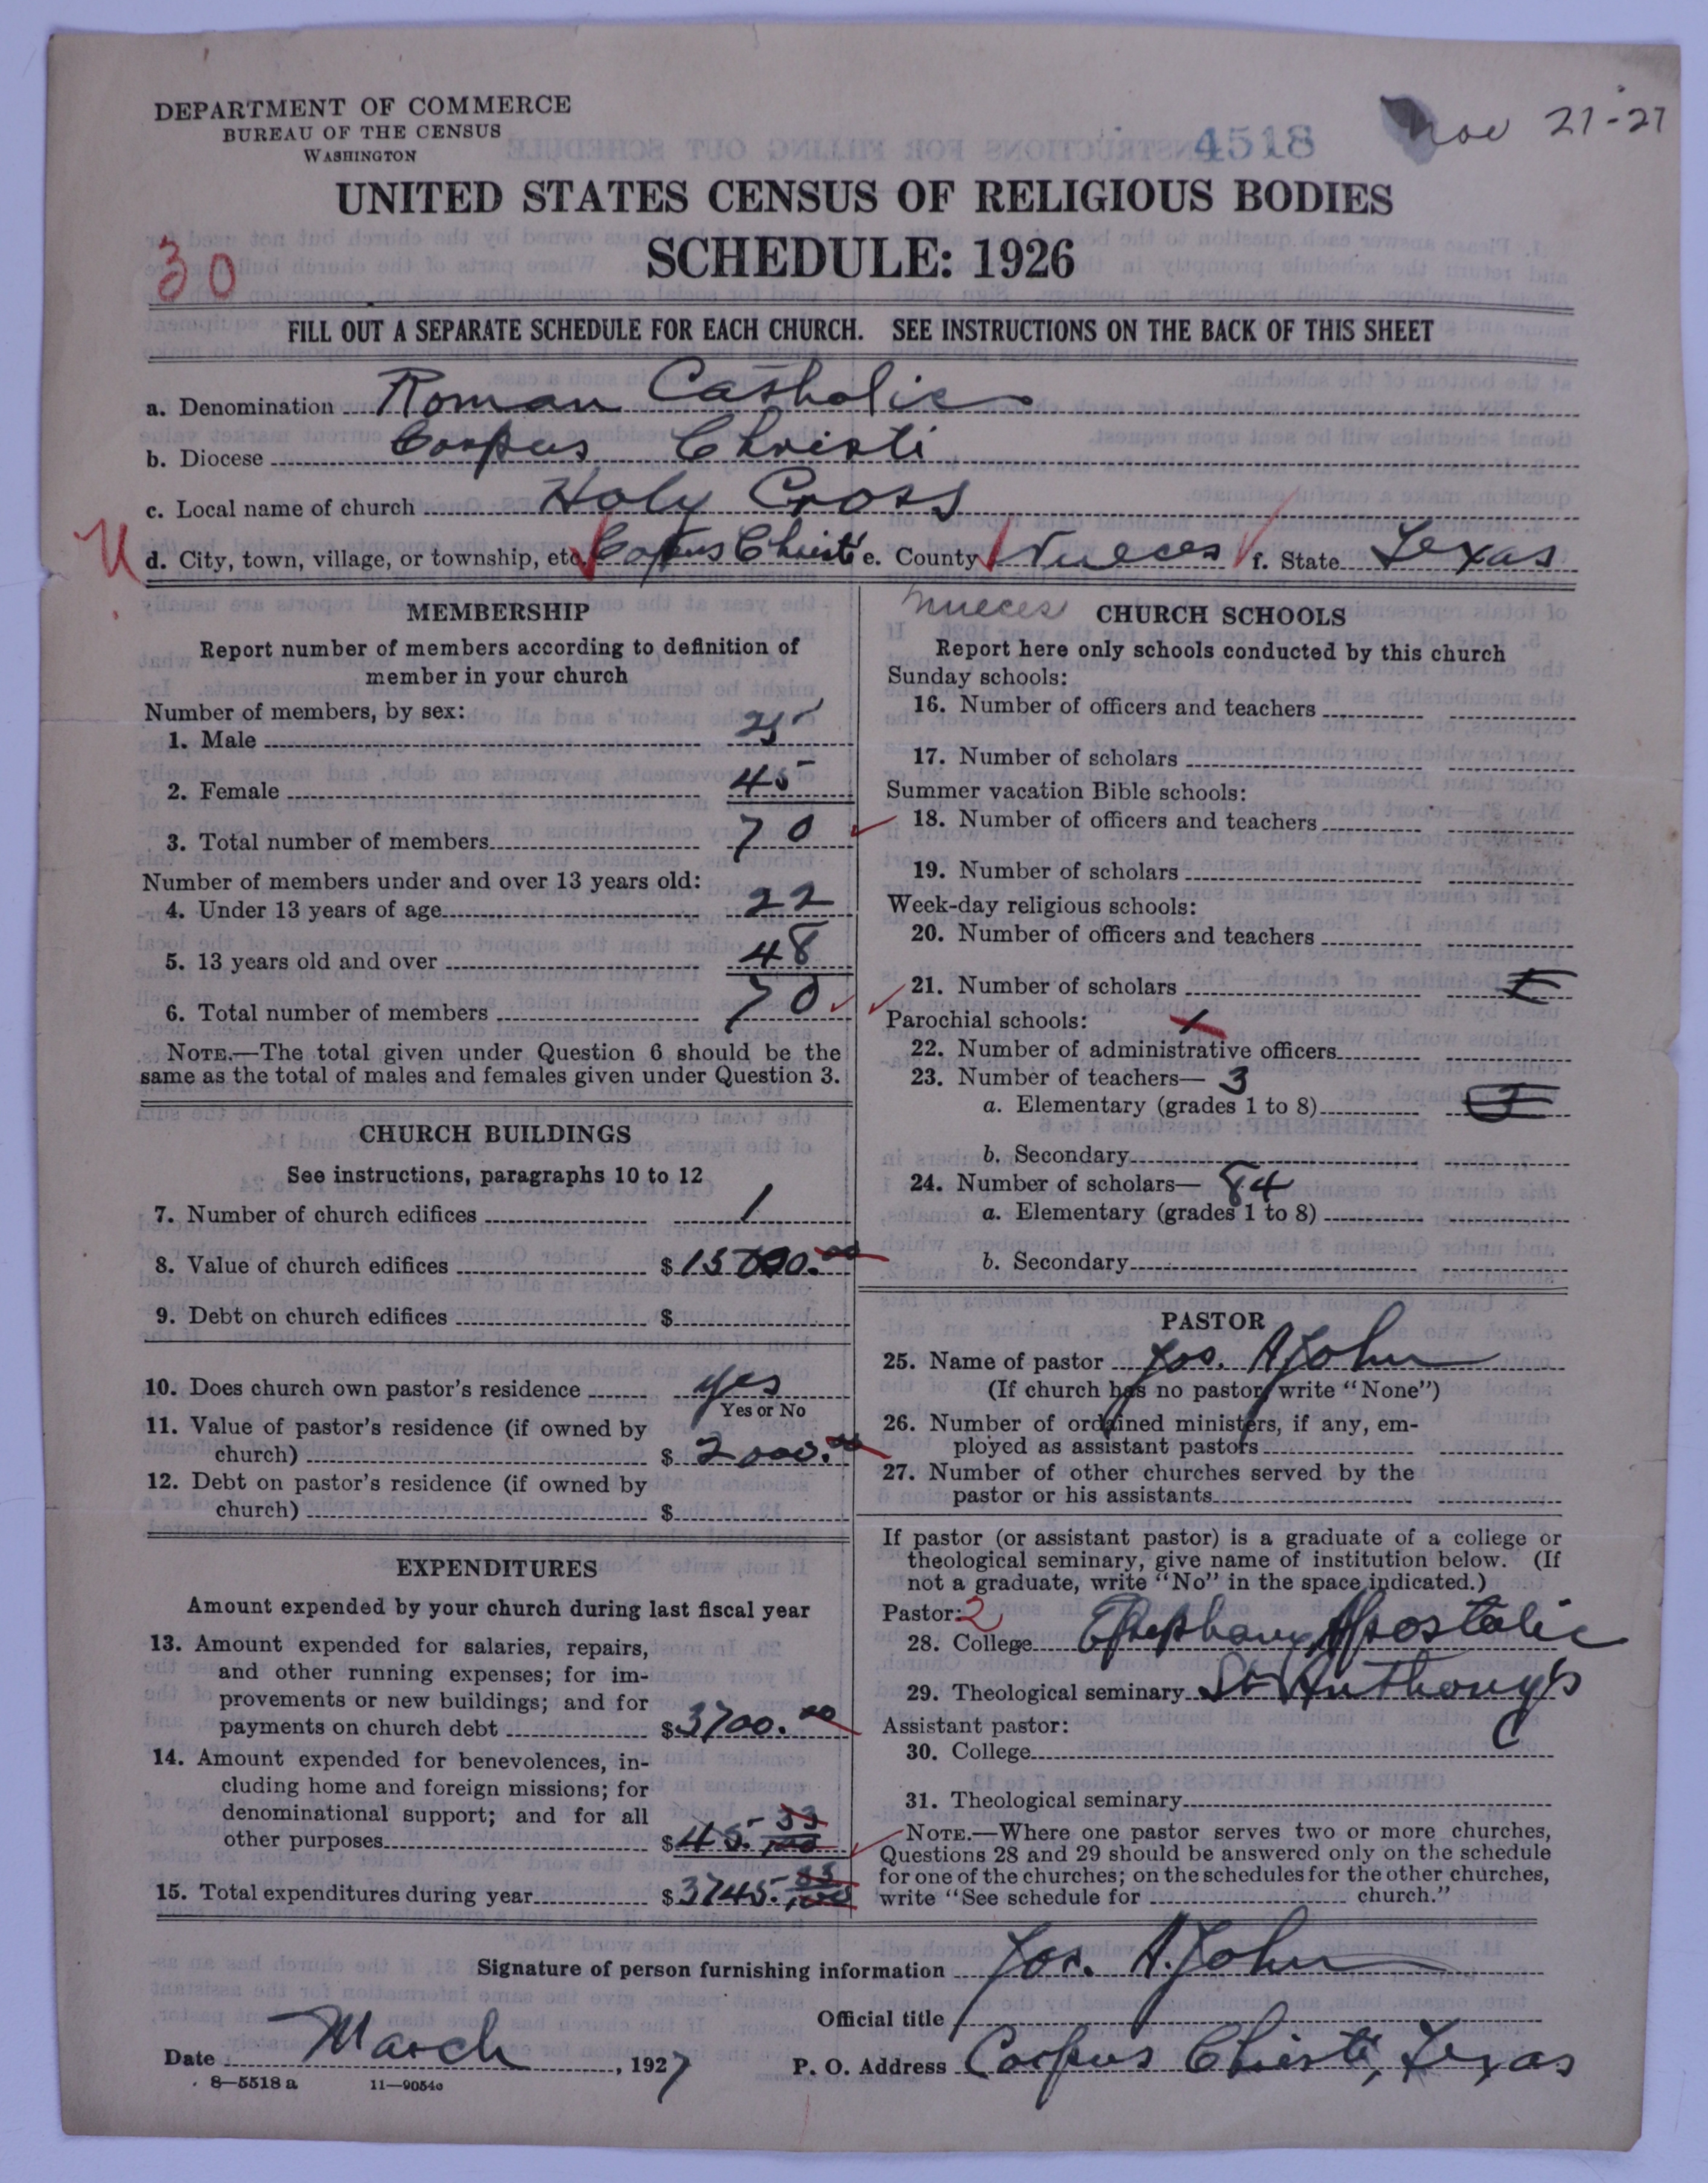 DEPARTMENT OF COMMERCE
BUREAU OF THE CENSUS
WASHINGTON
4518
Nov 21-27
UNITED STATES CENSUS OF RELIGIOUS BODIES
SCHEDULE: 1926
30
FILL OUT A SEPARATE SCHEDULE FOR EACH CHURCH. SEE INSTRUCTIONS ON THE BACK OF THIS SHEET
a. Denomination Roman Catholic
b. Diocese Corpus Christi
c. Local name of church Holy Cross
U d. City, town, village, or township, etc. Corpus Christi e. County Nueces f. State Texas
MEMBERSHIP
Report number of members according to definition of
member in your church
Number of members, by sex:
1. Male 25
2. Female 45
3. Total number of members 70
Number of members under and over 13 years old:
4. Under 13 years of age 22
5. 13 years old and over 48
6. Total number of members 70
NOTE.—The total given under Question 6 should be the
same as the total of males and females given under Question 3.
CHURCH BUILDINGS
See instructions, paragraphs 10 to 12
7. Number of church edifices 1
8. Value of church edifices $15000.00
9. Debt on church edifices $
10. Does church own pastor's residence yes
Yes or No
11. Value of pastor's residence (if owned by
church) $2000.00
12. Debt on pastor's residence (if owned by
church) $
EXPENDITURES
Amount expended by your church during last fiscal year
13. Amount expended for salaries, repairs,
and other running expenses; for im-
provements or new buildings; and for
payments on church debt $3700.00
14. Amount expended for benevolences, in-
cluding home and foreign missions; for
denominational support; and for all
other purposes $45.33/100
15. Total expenditures during year $3745.33/100
Nueces
CHURCH SCHOOLS
Report here only schools conducted by this church
Sunday schools:
16. Number of officers and teachers
17. Number of scholars
Summer vacation Bible schools:
18. Number of officers and teachers
19. Number of scholars
Week-day religious schools:
20. Number of officers and teachers
21. Number of scholars
Parochial schools: 1
22. Number of administrative officers
23. Number of teachers— 3
a. Elementary (grades 1 to 8) 3
b. Secondary
24. Number of scholars— 84
a. Elementary (grades 1 to 8)
b. Secondary
PASTOR
25. Name of pastor Jos. A John
(If church has no pastor, write "None")
26. Number of ordained ministers, if any, em-
ployed as assistant pastors
27. Number of other churches served by the
pastor or his assistants
If pastor (or assistant pastor) is a graduate of a college or
theological seminary, give name of institution below. (If
not a graduate, write "No" in the space indicated.)
Pastor: 2
28. College Epiphany Apostolic
29. Theological seminary St Anthony's
Assistant pastor: C
30. College
31. Theological seminary
NOTE.—Where one pastor serves two or more churches,
Questions 28 and 29 should be answered only on the schedule
for one of the churches; on the schedules for the other churches,
write "See schedule for church."
Signature of person furnishing information Jos. A. John
Official title
Date March, 1927 P. O. Address Corpus Christi, Texas
8—5518 a 11—9054c